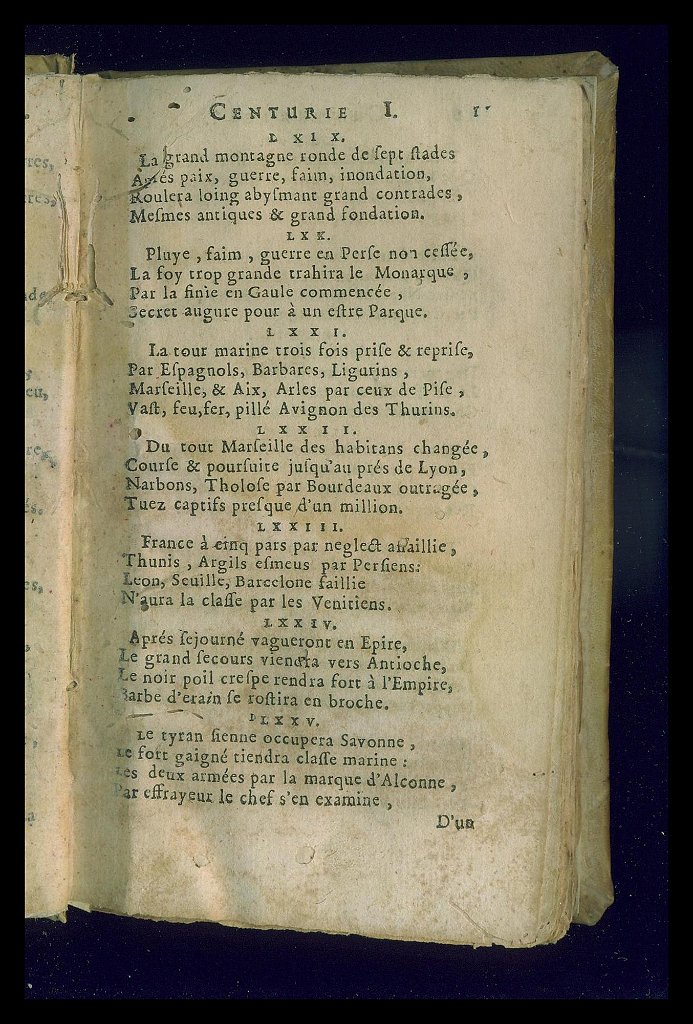 CENTURIE I.
LXIX.
La grand montagne ronde de ſept ſtades
Aprés paix, guerre, faim, inondation,
Roulera loing abyſmant grand contrades,
Meſmes antiques & grand fondation.
LXX.
Pluye, faim, guerre en Perſe non ceſſée,
La foy trop grande trahira le Monarque,
Par la finie en Gaule commencée,
Secret augure pour à un eſtre Parque.
LXXI.
La tour marine trois fois priſe & repriſe,
Par Eſpagnols, Barbares, Ligurins,
Marſeille, & Aix, Arles par ceux de Piſe,
Vaſt, feu, fer, pillé Avignon des Thurins.
LXXII.
Du tout Marſeille des habitans changée,
Courſe & pourſuite juſqu'au prés de Lyon,
Narbons, Tholoſe par Bourdeaux outragée,
Tuez captifs preſque d'un million.
LXXIII.
France à cinq pars par neglect aſſaillie,
Thunis, Argils eſmeus par Perſiens:
Leon, Seuille, Barcelone faillie
N'aura la claſſe par les Venitiens.
LXXIV.
Aprés ſejourné vagueront en Epire,
Le grand ſecours viendra vers Antioche,
Le noir poil creſpe rendra fort à l'Empire,
Barbe d'erain ſe roſtira en broche.
LXXV.
Le tyran ſienne occupera Savonne,
Le fort gaigné tiendra claſſe marine:
Les deux armées par la marque d'Alconne,
Par effrayeur le chef s'en examine,
D'un